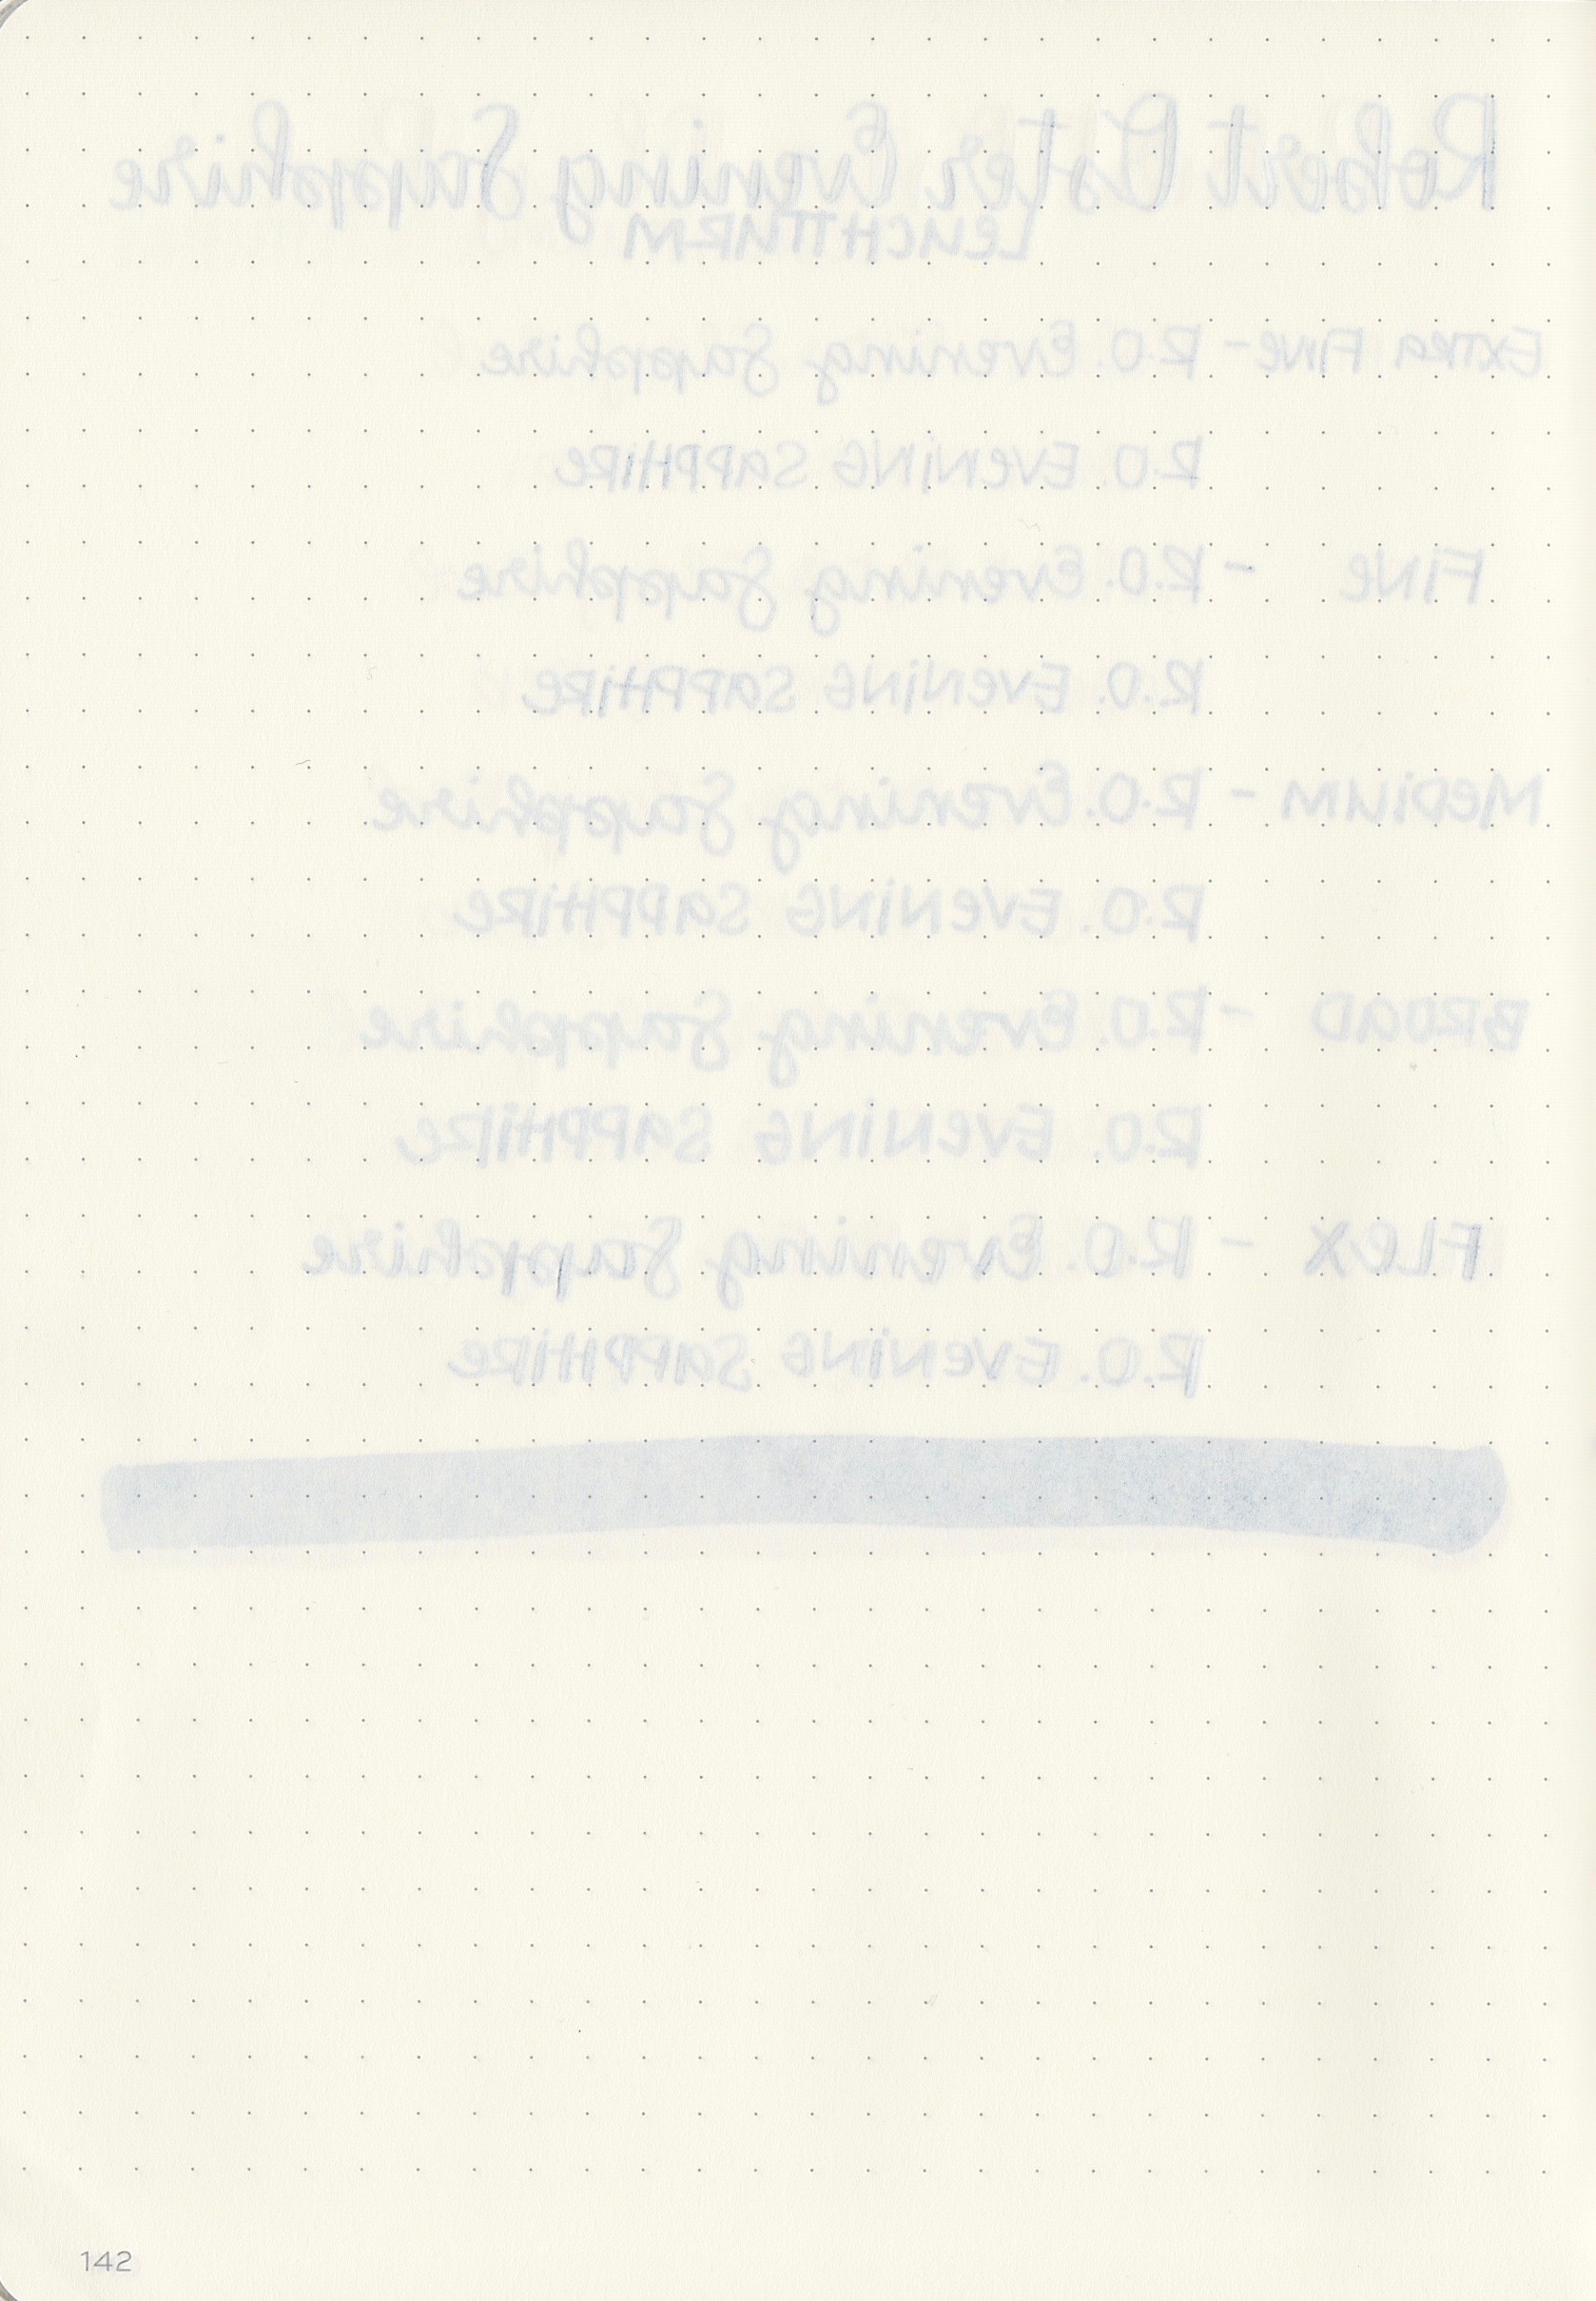 Robert Oster Evening Sapphire
LEUCHTTURM
EXTRA FINE - R.O. Evening Sapphire
R.O. EVENING SAPPHIRE
FINE - R.O. Evening Sapphire
R.O. EVENING SAPPHIRE
MEDIUM - R.O. Evening Sapphire
R.O. EVENING SAPPHIRE
BROAD - R.O. Evening Sapphire
R.O. EVENING SAPPHIRE
FLEX - R.O. Evening Sapphire
R.O. EVENING SAPPHIRE
142